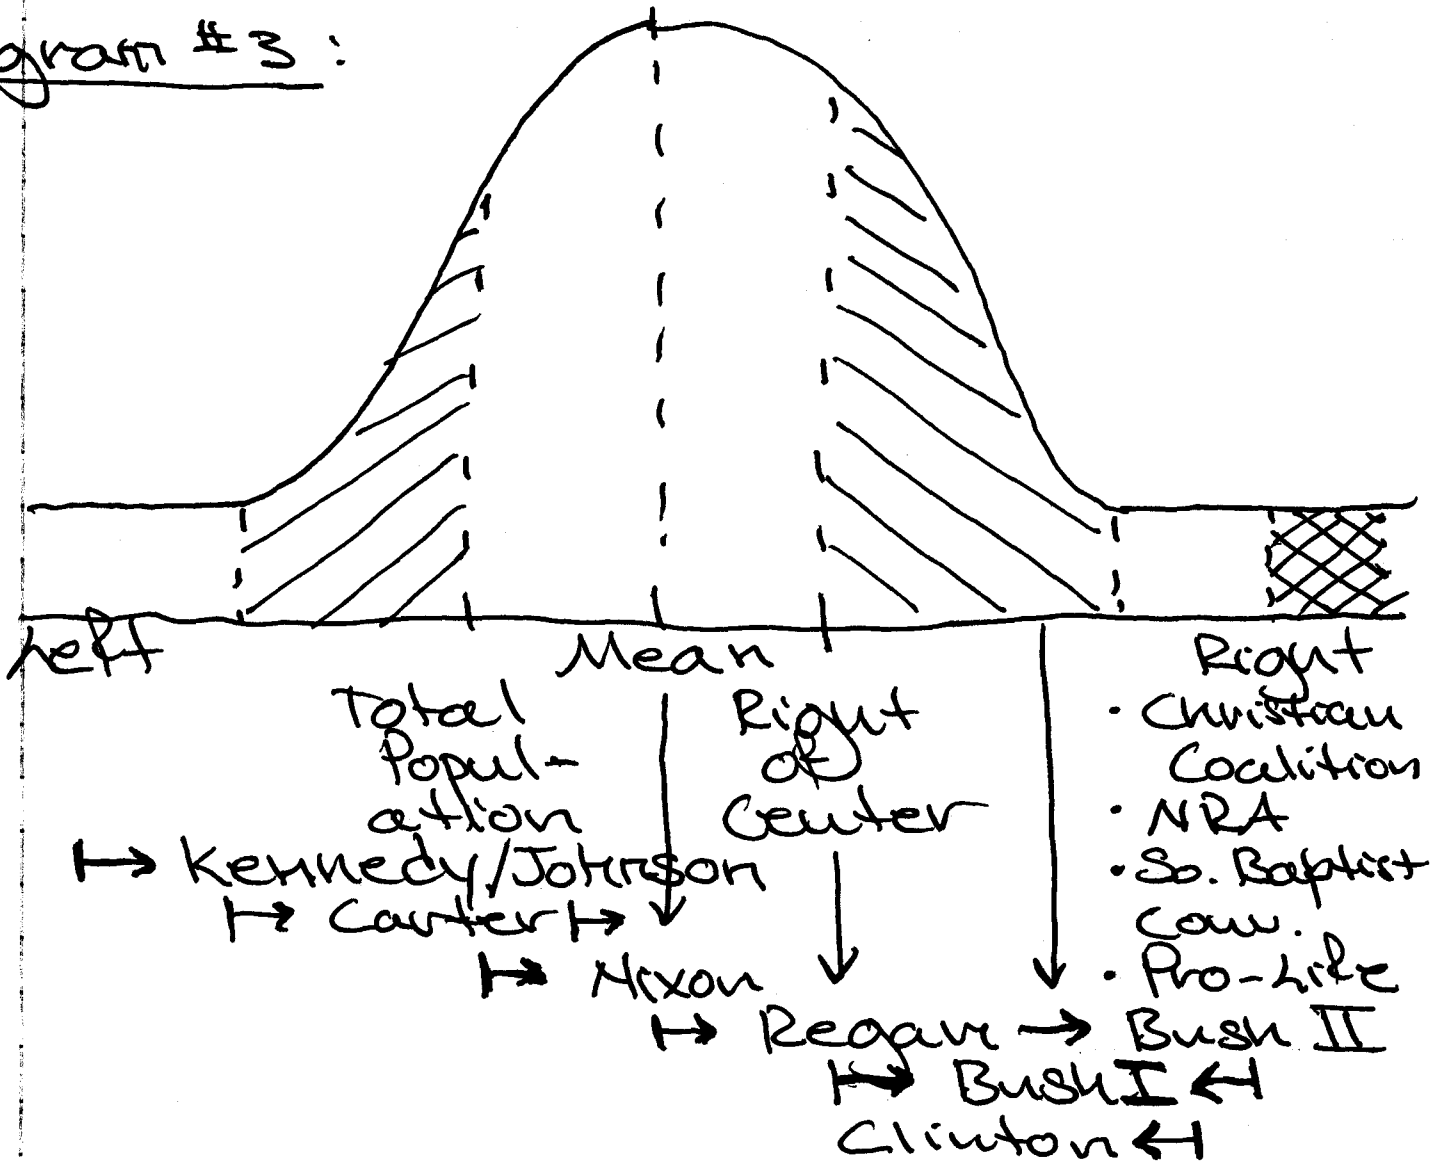 gram #3:
Left
Mean
Right
Total
Popul-
ation
Right
of
Center
• Christian
Coalition
• NRA
• So. Baptist
Conv.
• Pro-Life
Kennedy/Johnson
Carter
Nixon
Regan → Bush II
Bush I
Clinton